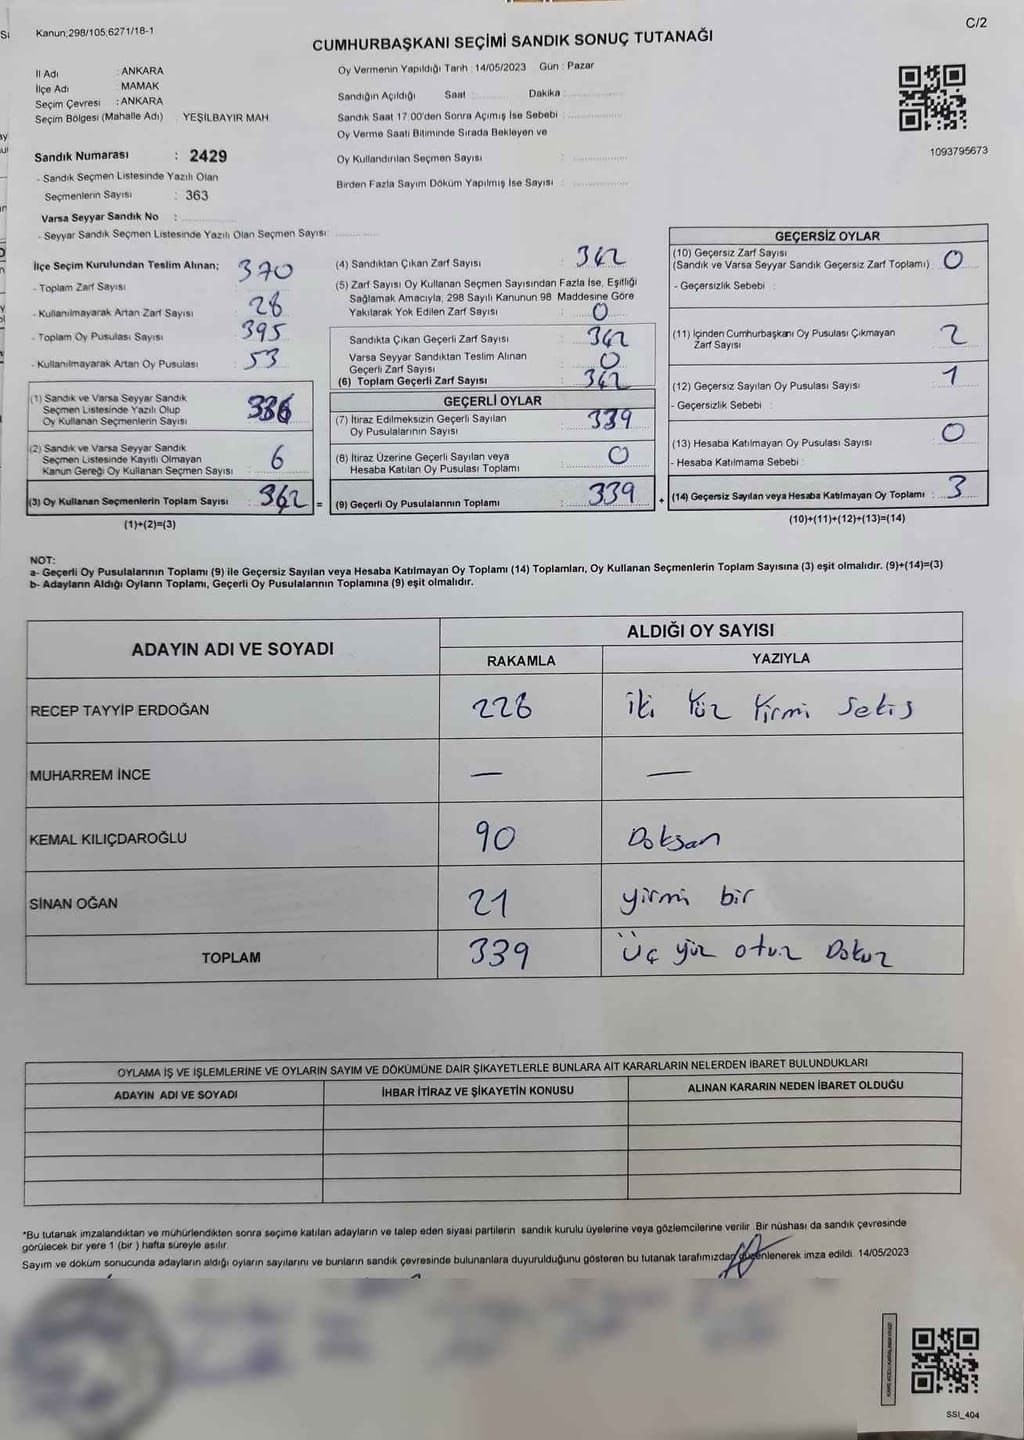 Kanun;298/105;6271/18-1
C/2
CUMHURBAŞKANI SEÇİMİ SANDIK SONUÇ TUTANAĞI
İl Adı : ANKARA
İlçe Adı : MAMAK
Seçim Çevresi : ANKARA
Seçim Bölgesi (Mahalle Adı) YEŞİLBAYIR MAH
Sandık Numarası : 2429
- Sandık Seçmen Listesinde Yazılı Olan
Seçmenlerin Sayısı : 363
Varsa Seyyar Sandık No :
- Seyyar Sandık Seçmen Listesinde Yazılı Olan Seçmen Sayısı:
Oy Vermenin Yapıldığı Tarih : 14/05/2023 Gün : Pazar
Sandığın Açıldığı Saat : Dakika :
Sandık Saat 17:00'den Sonra Açımış İse Sebebi :
Oy Verme Saati Bitiminde Sırada Bekleyen ve
Oy Kullandırılan Seçmen Sayısı :
Birden Fazla Sayım Döküm Yapılmış İse Sayısı :
1093795673
İlçe Seçim Kurulundan Teslim Alınan;
- Toplam Zarf Sayısı 370
- Kullanılmayarak Artan Zarf Sayısı 28
- Toplam Oy Pusulası Sayısı 395
- Kullanılmayarak Artan Oy Pusulası 53
(1) Sandık ve Varsa Seyyar Sandık
Seçmen Listesinde Yazılı Olup
Oy Kullanan Seçmenlerin Sayısı : 336
(2) Sandık ve Varsa Seyyar Sandık
Seçmen Listesinde Kayıtlı Olmayan
Kanun Gereği Oy Kullanan Seçmen Sayısı : 6
(3) Oy Kullanan Seçmenlerin Toplam Sayısı : 342 =
(1)+(2)=(3)
(4) Sandıktan Çıkan Zarf Sayısı : 342
(5) Zarf Sayısı Oy Kullanan Seçmen Sayısından Fazla İse, Eşitliği
Sağlamak Amacıyla, 298 Sayılı Kanunun 98 Maddesine Göre
Yakılarak Yok Edilen Zarf Sayısı : 0
Sandıkta Çıkan Geçerli Zarf Sayısı : 342
Varsa Seyyar Sandıktan Teslim Alınan
Geçerli Zarf Sayısı : 0
(6) Toplam Geçerli Zarf Sayısı : 342
GEÇERLİ OYLAR
(7) İtiraz Edilmeksizin Geçerli Sayılan
Oy Pusulalarının Sayısı : 339
(8) İtiraz Üzerine Geçerli Sayılan veya
Hesaba Katılan Oy Pusulası Toplamı : 0
(9) Geçerli Oy Pusulalarının Toplamı : 339 +
GEÇERSİZ OYLAR
(10) Geçersiz Zarf Sayısı
(Sandık ve Varsa Seyyar Sandık Geçersiz Zarf Toplamı) : 0
- Geçersizlik Sebebi :
(11) İçinden Cumhurbaşkanı Oy Pusulası Çıkmayan
Zarf Sayısı 2
(12) Geçersiz Sayılan Oy Pusulası Sayısı : 1
- Geçersizlik Sebebi :
(13) Hesaba Katılmayan Oy Pusulası Sayısı : 0
- Hesaba Katılmama Sebebi :
(14) Geçersiz Sayılan veya Hesaba Katılmayan Oy Toplamı : 3
(10)+(11)+(12)+(13)=(14)
NOT:
a- Geçerli Oy Pusulalarının Toplamı (9) ile Geçersiz Sayılan veya Hesaba Katılmayan Oy Toplamı (14) Toplamları, Oy Kullanan Seçmenlerin Toplam Sayısına (3) eşit olmalıdır. (9)+(14)=(3)
b- Adayların Aldığı Oyların Toplamı, Geçerli Oy Pusulalarının Toplamına (9) eşit olmalıdır.
ADAYIN ADI VE SOYADI ALDIĞI OY SAYISI
RAKAMLA YAZIYLA
RECEP TAYYİP ERDOĞAN 228 iki Yüz Yirmi Sekiz
MUHARREM İNCE — —
KEMAL KILIÇDAROĞLU 90 Doksan
SİNAN OĞAN 21 yirmi bir
TOPLAM 339 Üç yüz otuz Dokuz
OYLAMA İŞ VE İŞLEMLERİNE VE OYLARIN SAYIM VE DÖKÜMÜNE DAİR ŞİKAYETLERLE BUNLARA AİT KARARLARIN NELERDEN İBARET BULUNDUKLARI
ADAYIN ADI VE SOYADI İHBAR İTİRAZ VE ŞİKAYETİN KONUSU ALINAN KARARIN NEDEN İBARET OLDUĞU
*Bu tutanak imzalandıktan ve mühürlendikten sonra seçime katılan adayların ve talep eden siyasi partilerin sandık kurulu üyelerine veya gözlemcilerine verilir. Bir nüshası da sandık çevresinde
görülecek bir yere 1 (bir ) hafta süreyle asılır.
Sayım ve döküm sonucunda adayların aldığı oyların sayılarını ve bunların sandık çevresinde bulunanlara duyurulduğunu gösteren bu tutanak tarafımızdan düzenlenerek imza edildi. 14/05/2023
SSI_404